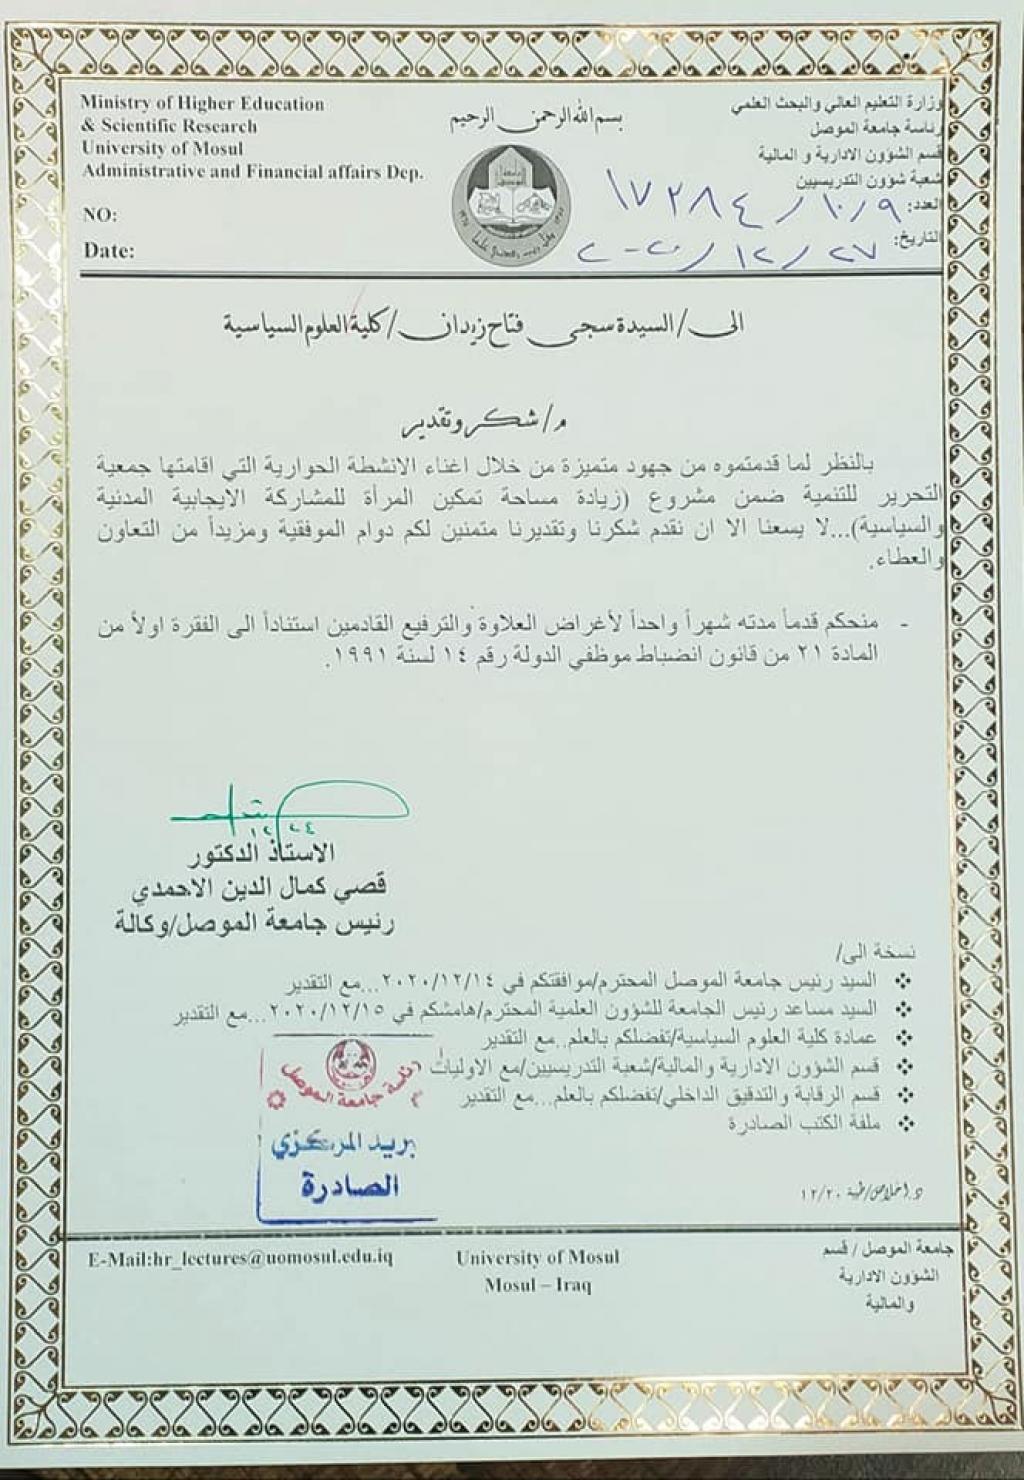 Ministry of Higher Education
& Scientific Research
University of Mosul
Administrative and Financial affairs Dep.
NO:
Date:
بسم الله الرحمن الرحيم
وزارة التعليم العالي والبحث العلمي
رئاسة جامعة الموصل
قسم الشؤون الادارية و المالية
شعبة شؤون التدريسيين
العدد: ١٧٢٨٤/١٠/٩
التاريخ: ٢٠٢٠/١٢/٢٧
الى/ السيدة سجى فتاح زيدان/ كلية العلوم السياسية
م/ شكر وتقدير
بالنظر لما قدمتموه من جهود متميزة من خلال اغناء الانشطة الحوارية التي اقامتها جمعية
التحرير للتنمية ضمن مشروع (زيادة مساحة تمكين المرأة للمشاركة الايجابية المدنية
والسياسية)...لا يسعنا الا ان نقدم شكرنا وتقديرنا متمنين لكم دوام الموفقية ومزيداً من التعاون
والعطاء.
- منحكم قدماً مدته شهراً واحداً لأغراض العلاوة والترفيع القادمين استناداً الى الفقرة اولاً من
المادة ٢١ من قانون انضباط موظفي الدولة رقم ١٤ لسنة ١٩٩١.
١٢/٢٤
الاستاذ الدكتور
قصي كمال الدين الاحمدي
رئيس جامعة الموصل/وكالة
نسخة الى/
❖ السيد رئيس جامعة الموصل المحترم/موافقتكم في ٢٠٢٠/١٢/١٤...مع التقدير
❖ السيد مساعد رئيس الجامعة للشؤون العلمية المحترم/هامشكم في ٢٠٢٠/١٢/١٥...مع التقدير
❖ عمادة كلية العلوم السياسية/تفضلكم بالعلم..مع التقدير
❖ قسم الشؤون الادارية والمالية/شعبة التدريسيين/مع الاوليات
❖ قسم الرقابة والتدقيق الداخلي/تفضلكم بالعلم...مع التقدير
❖ ملفة الكتب الصادرة
رئاسة جامعة الموصل
بريد المركزي
الصادرة
١٢/٢٠
E-Mail:hr_lectures@uomosul.edu.iq
University of Mosul
Mosul – Iraq
جامعة الموصل / قسم
الشؤون الادارية
والمالية